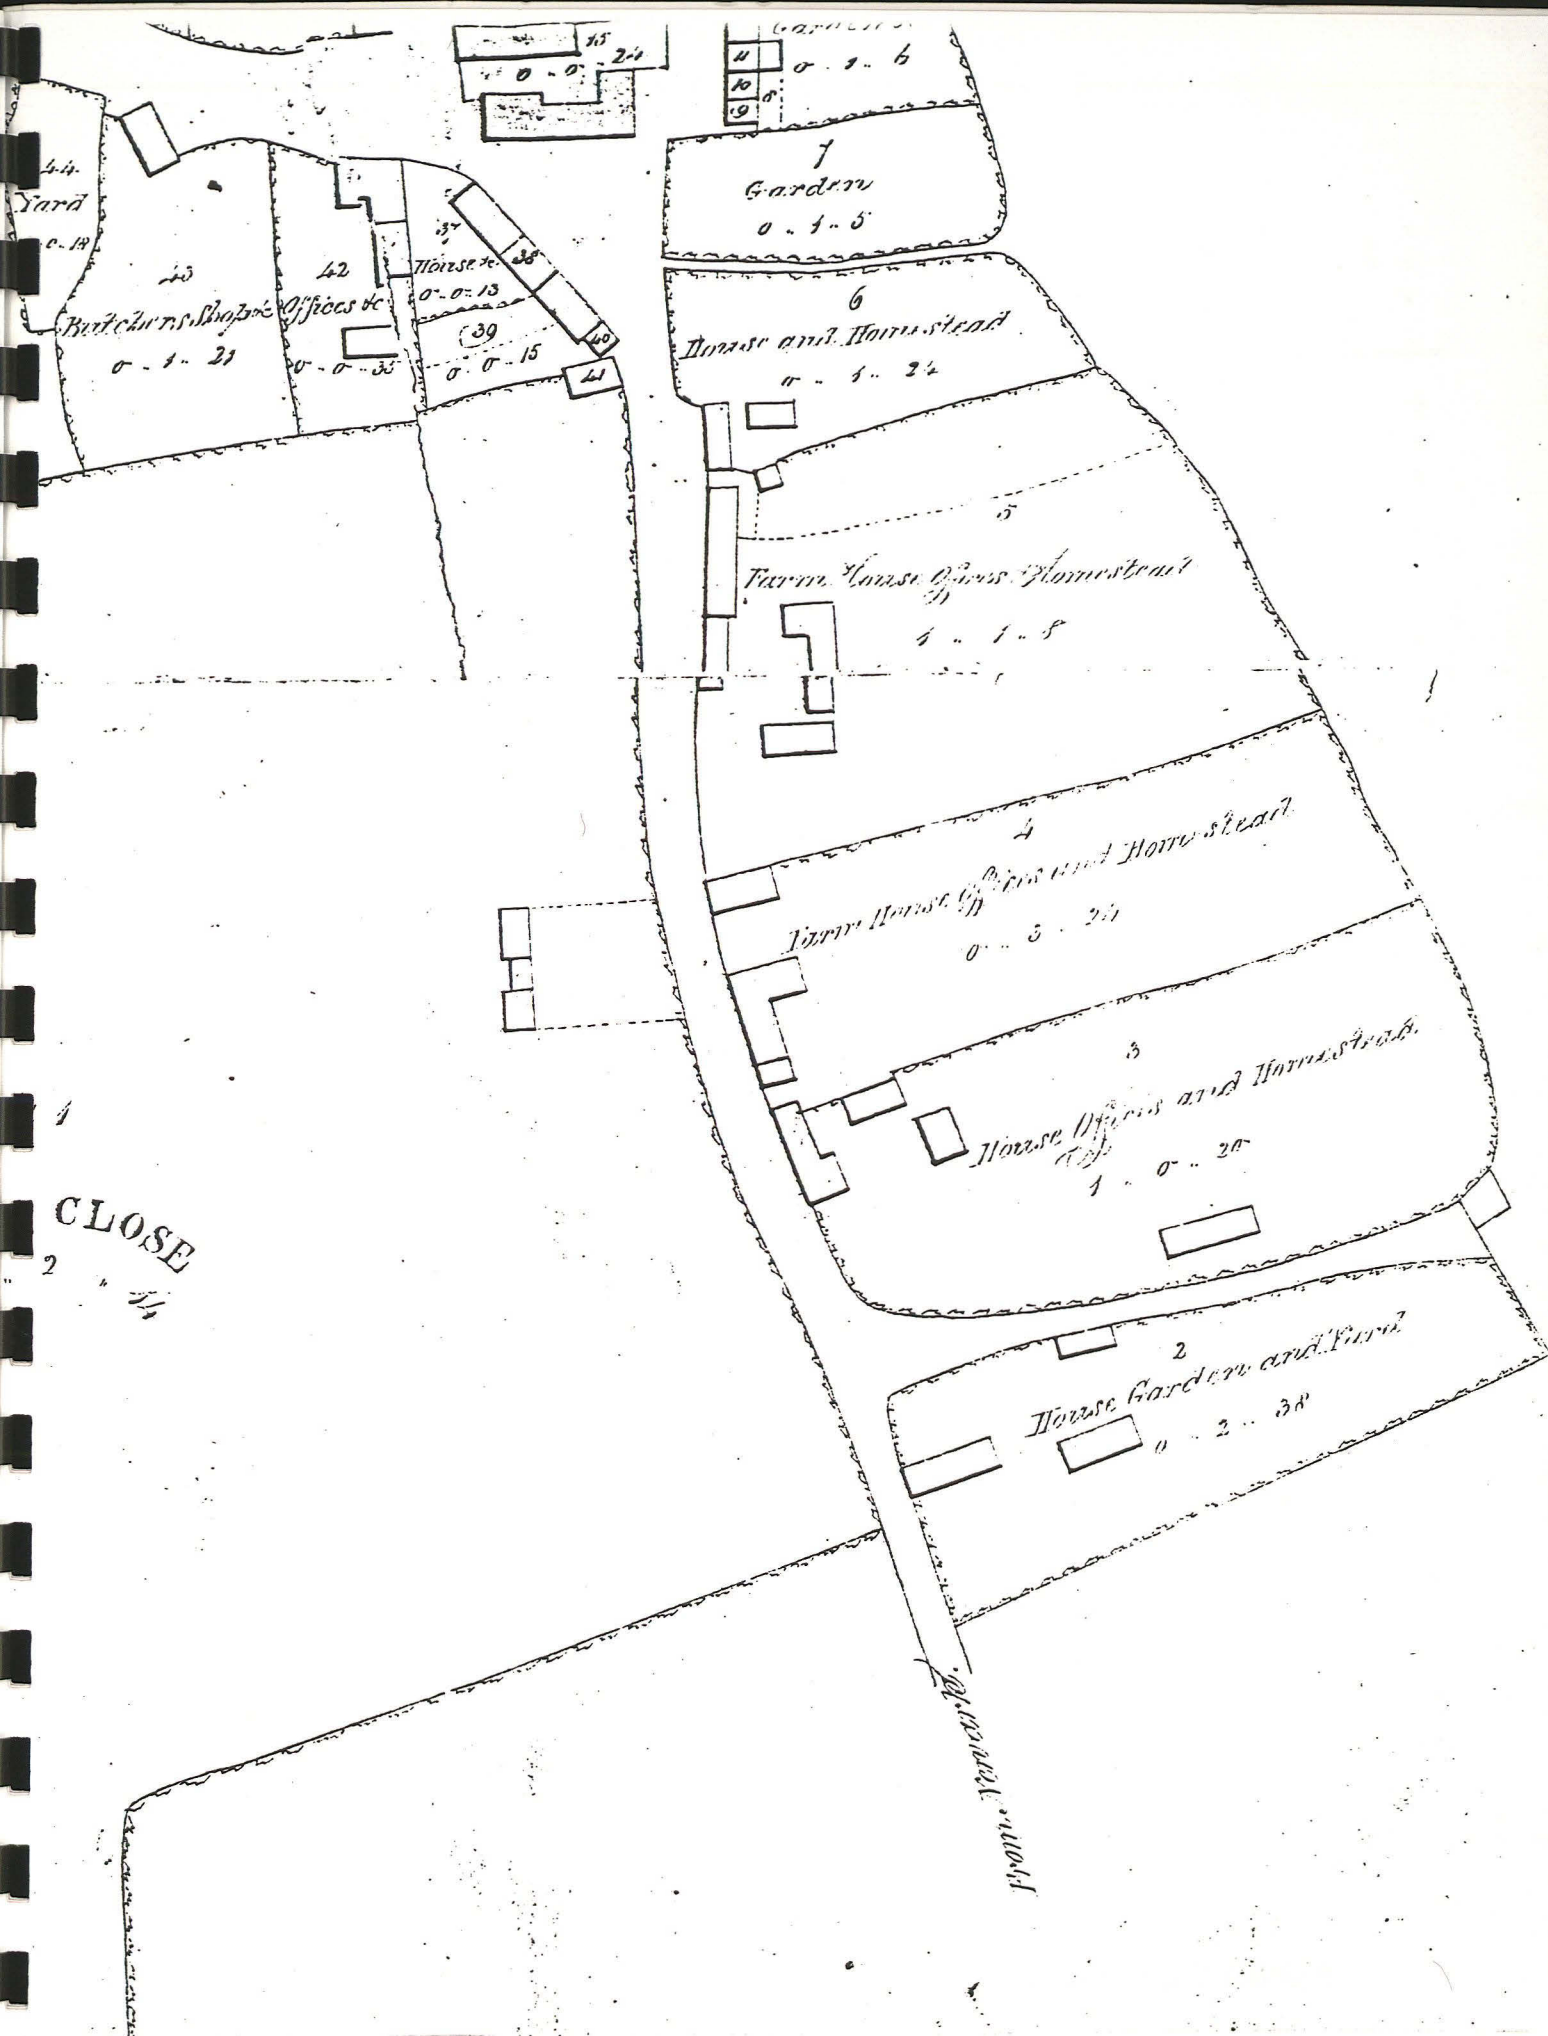 15
0 .. 0 .. 24
Gardens
0 .. 1 .. 6
11
10
9
8
7
Garden
0 .. 1 .. 5
44
Yard
0 .. 18
43
Butchers Shop &c
0 .. 1 .. 21
42
Offices &c
0 .. 0 .. 35
37
House &c
0 .. 0 .. 13
38
39
0 .. 0 .. 15
40
41
6
House and Homestead
0 .. 1 .. 24
5
Farm House Offices & Homestead
1 .. 1 .. 8
4
Farm House Offices and Homestead
0 .. 3 .. 24
3
House Offices and Homestead
1 .. 0 .. 20
1
CLOSE
2
2
House Garden and Yard
0 .. 2 .. 38
From